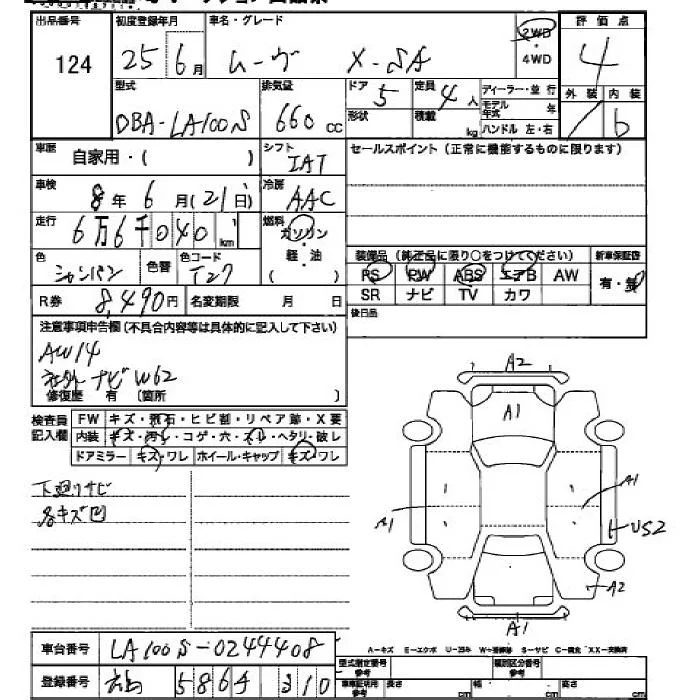 出品番号 初度登録年月 車名・グレード 評価点
124 25年6月 ムーヴ X-SA 2WD・4WD 4
型式 排気量 ドア 5 定員 4人 ディーラー・並行 外装 内装
DBA-LA100S 660cc 形状 積載 kg モデル年式 年 b
ハンドル 左・右
車歴 自家用・( ) シフト IAT セールスポイント(正常に機能するものに限ります)
車検 8年6月(21日) 冷房 AAC
走行 6万6千040km 燃料 ガソリン・軽・油 ( )
色 シャンパン 色替 色コード T27 装備品(純正品に限り○をつけてください) 新車保証書
PS PW ABS エアB AW 有・無
R券 8,490円 名変期限 月 日 SR ナビ TV カワ
注意事項申告欄(不具合内容等は具体的に記入して下さい) 後日品
AW14
社外ナビ W62
修復歴 有 (箇所 )
検査員記入欄 FW キズ・飛石・ヒビ割・リペア跡・X要
内装 キズ・汚レ・コゲ・穴・スレ・ヘタリ・破レ
ドアミラー キズ・ワレ ホイール・キャップ キズ・ワレ
下廻りサビ
各キズ凹
A2
A1
A1
A1
US2
A2
A1
A-キズ E-エクボ U-凹み W-補修跡 S-サビ C-腐食 XX-交換済
車台番号 LA100S-0244408
登録番号 5864 310
型式指定番号 参考 類別区分番号 参考
車車証明用 参考 長さ cm 幅 cm 高さ cm